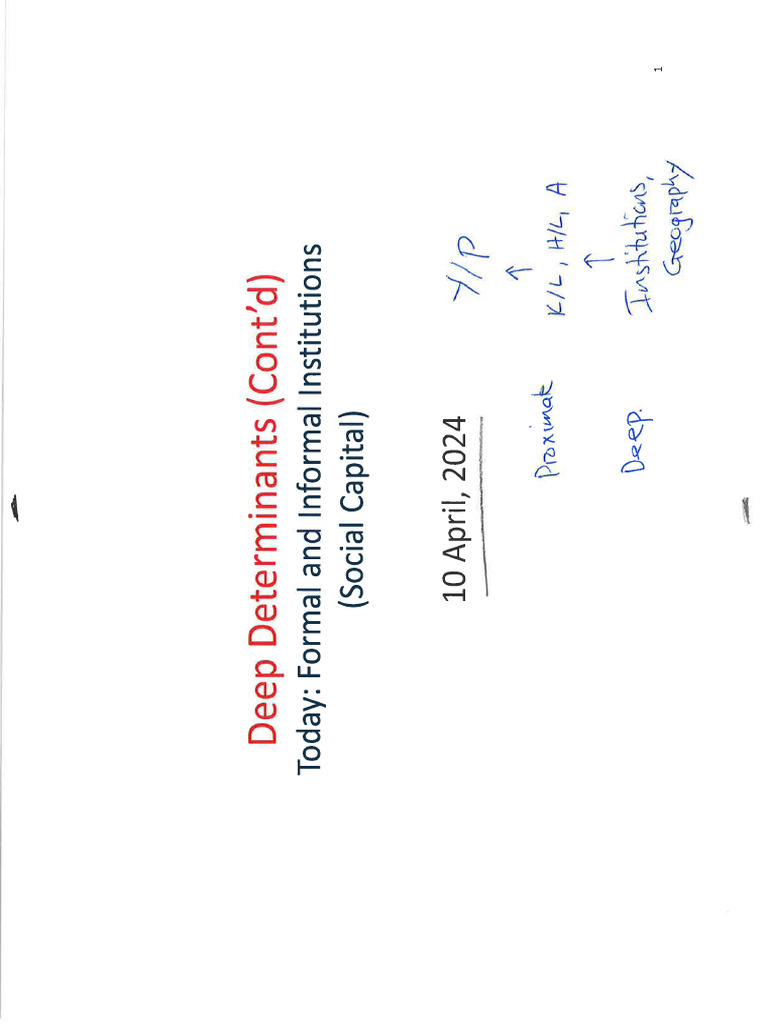 Deep Determinants (Cont'd)
Today: Formal and Informal Institutions
(Social Capital)
10 April, 2024
Y/P
↑
Proximate K/L, H/L, A
↑
Deep. Institutions,
Geography
1